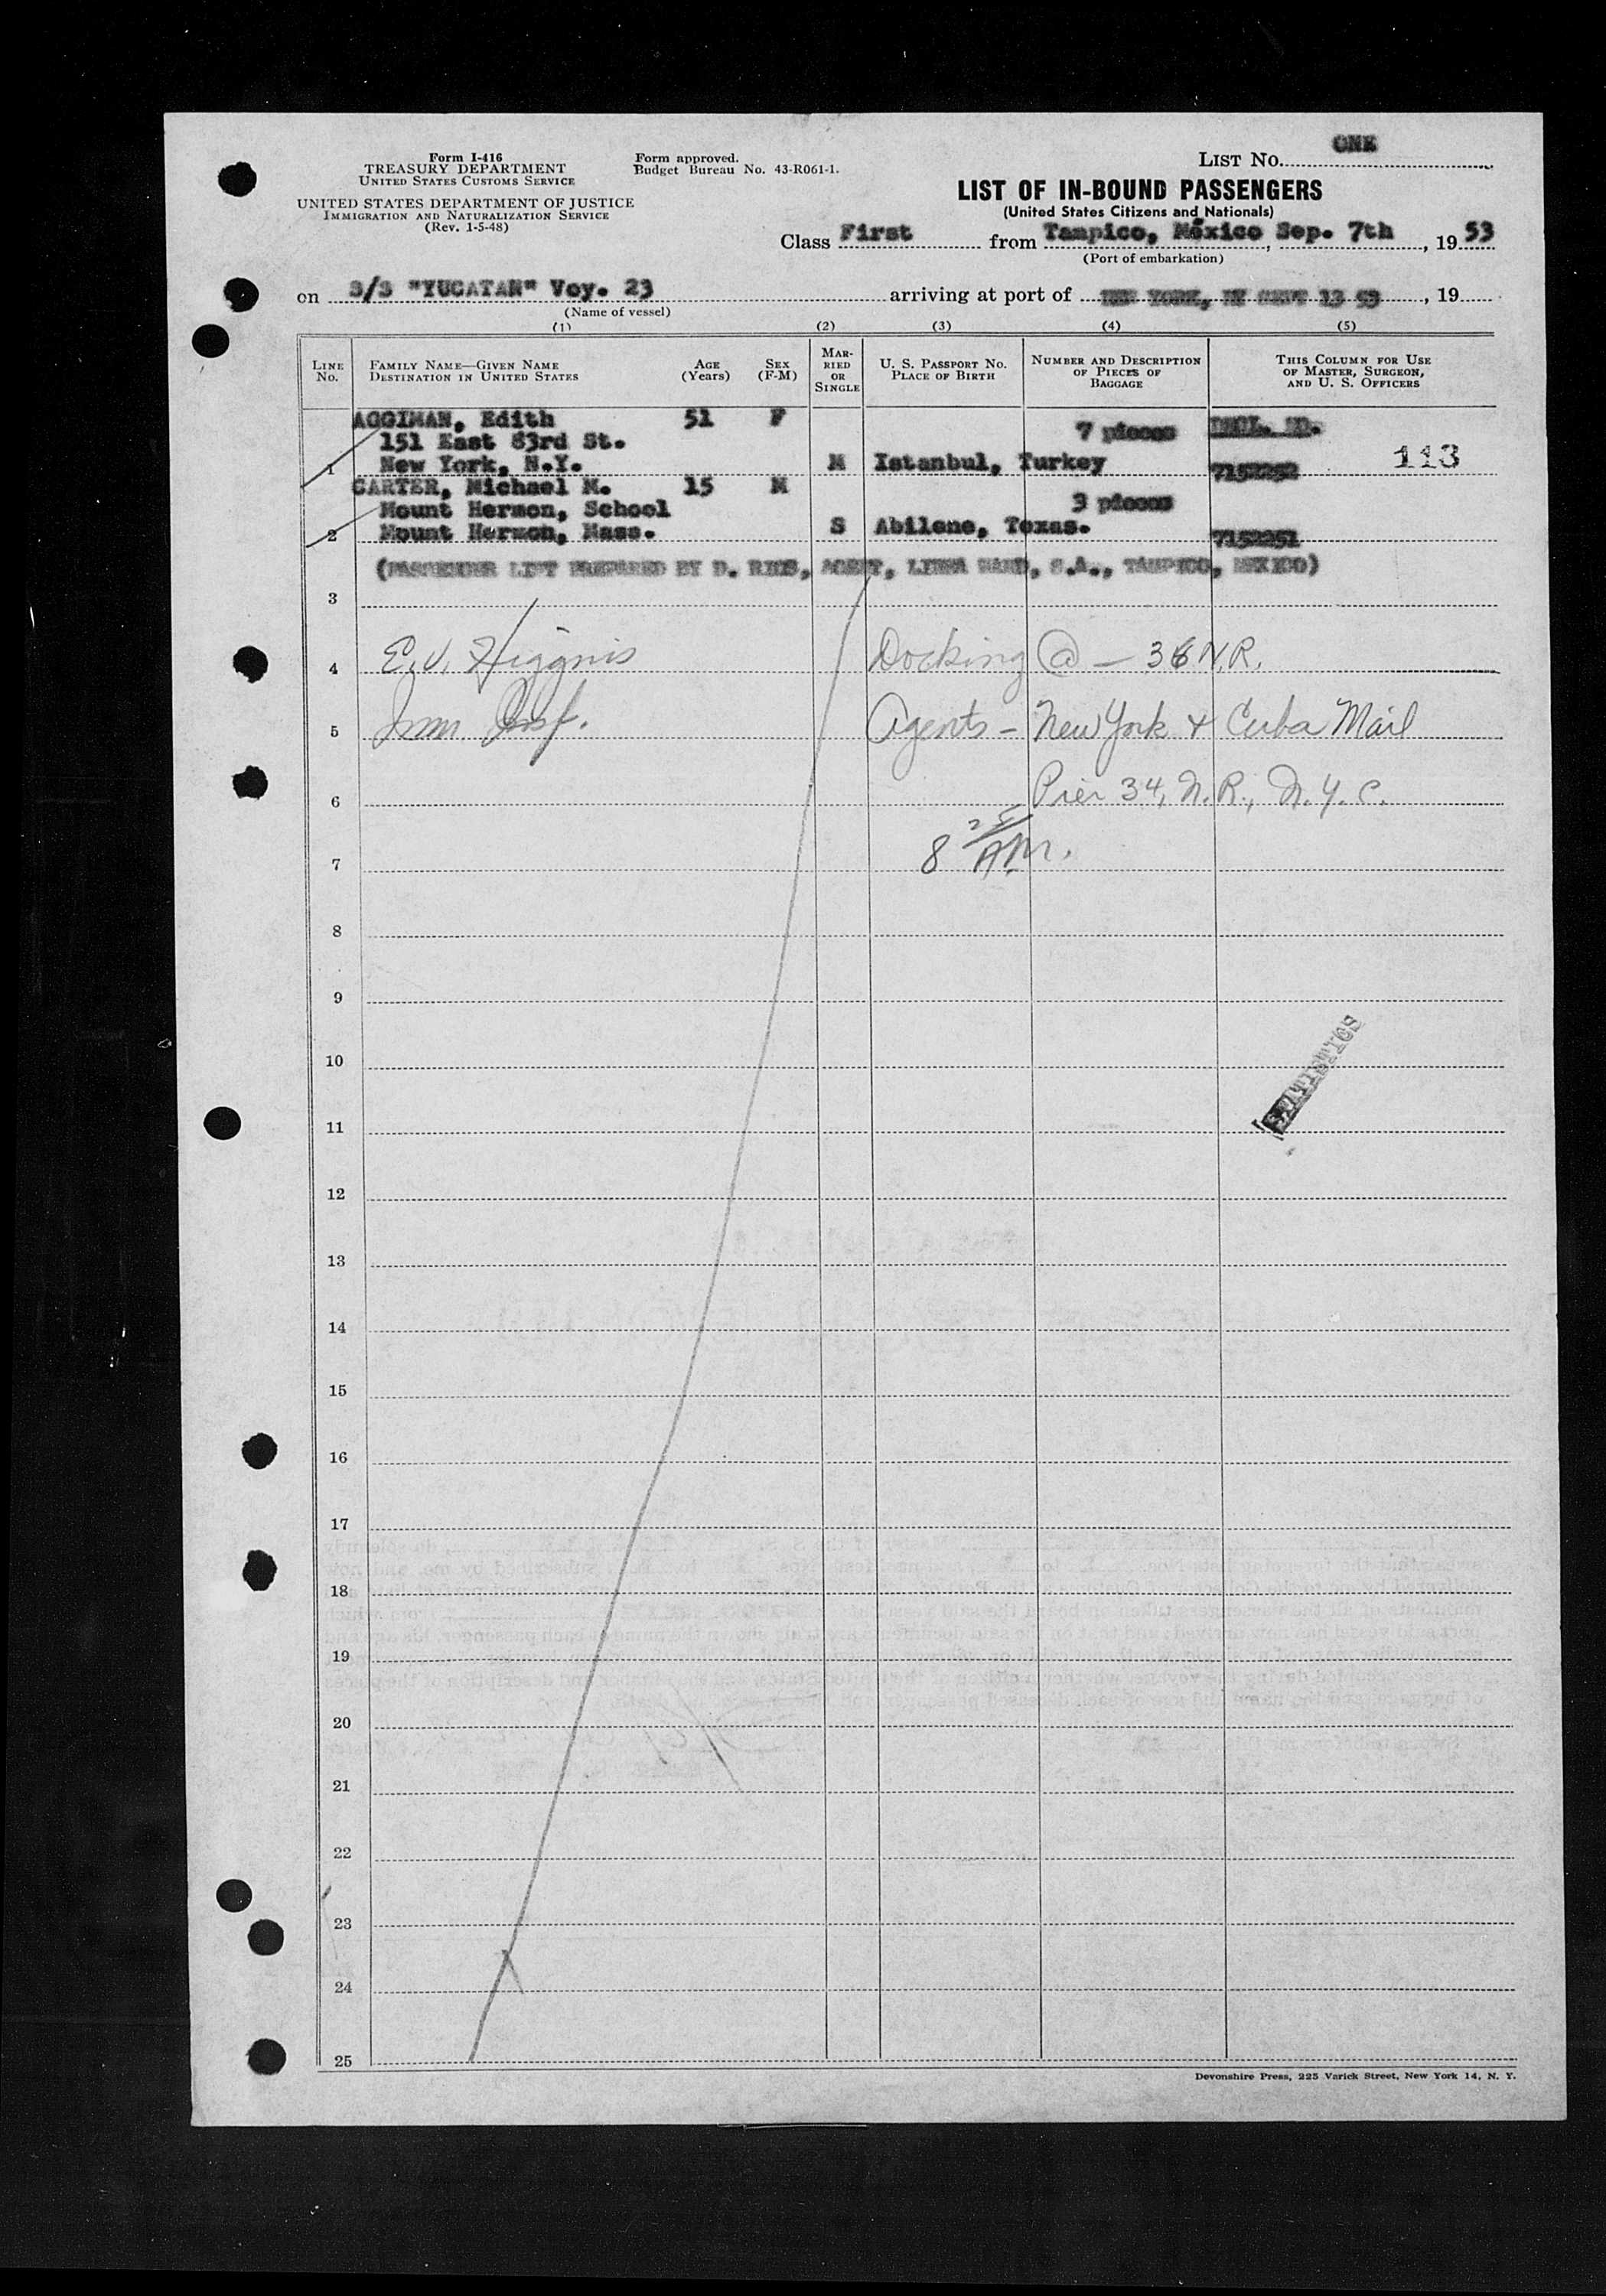 Form I-416
TREASURY DEPARTMENT
UNITED STATES CUSTOMS SERVICE
UNITED STATES DEPARTMENT OF JUSTICE
IMMIGRATION AND NATURALIZATION SERVICE
(Rev. 1-5-48)
Form approved.
Budget Bureau No. 43-R061-1.
LIST No. ONE
LIST OF IN-BOUND PASSENGERS
(United States Citizens and Nationals)
Class First from Tampico, México Sep. 7th, 19 53
(Port of embarkation)
on S/S "YUCATAN" Voy. 23 arriving at port of NEW YORK, NY SEPT 13 53, 19
(Name of vessel)
(1) (2) (3) (4) (5)
LINE No. FAMILY NAME—GIVEN NAME DESTINATION IN UNITED STATES AGE (Years) SEX (F-M) MARRIED OR SINGLE U. S. PASSPORT No. PLACE OF BIRTH NUMBER AND DESCRIPTION OF PIECES OF BAGGAGE THIS COLUMN FOR USE OF MASTER, SURGEON, AND U. S. OFFICERS
AGGIMAN, Edith 51 F
151 East 83rd St. 7 pieces DECL. NO.
1 New York, N.Y. M Istanbul, Turkey 7152252 113
CARTER, Michael M. 15 M
Mount Hermon, School 3 pieces
2 Mount Hermon, Mass. S Abilene, Texas. 7152251
(PASSENGER LIST PREPARED BY D. RIOS, AGENT, LINEA WARD, S.A., TAMPICO, MEXICO)
3
4 E. V. Higgins Docking @ — 36 N.R.
5 Imm. Insp. Agents — New York & Cuba Mail
6 Pier 34, N.R., N.Y.C.
7 8 25 AM.
8
9
10
11
12
13
14
15
16
17
18
19
20
21
22
23
24
25
Devonshire Press, 225 Varick Street, New York 14, N. Y.